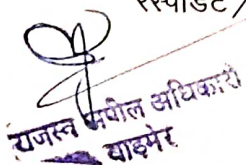 रेस्पोंडेंट/
राजस्व अपील अधिकारी
बाड़मेर